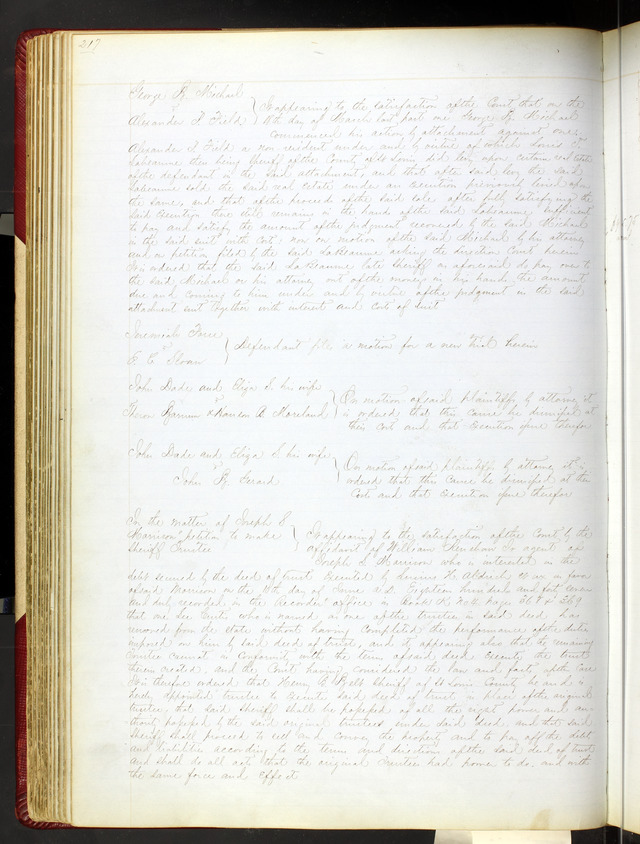 217
George R. Michael
vs
Alexander P Field
It appearing to the satisfaction of the Court that on the
11th day of March last past one George R. Michael
commenced his action by attachment against one
Alexander P Field a non resident under and by virtue of which Louis T
Labeaume then being Sheriff of the County of St Louis did levy upon certain real estate
of the defendant in the said attachment, and that after said levy the said
Labeaume sold the said real estate under an execution previously levied upon
the same, and that of the proceeds of the said sale after fully satisfying the
said execution there still remains in the hands of the said Labeaume sufficient
to pay and satisfy the amount of the judgment recovered by the said Michael
in the said suit with costs: now on motion of the said Michael by his attorney
and on petition filed by the said LaBeaume asking the direction Court herein
It is ordered that the said LaBeaume late Sheriff as aforesaid do pay over to
the said Michael or his attorney out of the money in his hands the amount
due and coming to him under and by virtue of the judgment in the said
attachment suit together with interest and cost of suit
Jeremiah Force
vs
E. C. Sloan
Defendant files a motion for a new trial herein
John Dade and Eliza S. his wife
vs
Barnum & A. Moreland
On motion of said plaintiffs by attorney it
is ordered that this cause be dismissed at
their cost and that execution issue therefor
John Dade and Eliza S his wife
vs
John B. Gerard
On motion of said plaintiffs by attorney it is
ordered that this cause be dismissed at their
Cost and that execution issue therefor
In the matter of Joseph S.
Morrison petition to make
Sheriff Trustee
It appearing to the satisfaction of the Court by the
affidavit of William Renshaw Jr agent of
Joseph S. Morrison who is interested in the
debt secured by the deed of trust executed by H. Aldrich in favor
of said Morrison on the 11th day of June A.D. Eighteen hundred and forty seven
and duly recorded in the Recorders office in Book K. No 4 page 368 & 369
that one who is named as one of the trustees in said deed has
removed from the State without having completed the performance of the duties
imposed on him by said deed of trust, and it appearing also that the remaining
trustee cannot in conformity with the terms of said deed execute the trust
therein created; and the Court having considered the law and facts of the case
It is therefore ordered that Henry B. Belt Sheriff of St Louis County be and is
hereby appointed trustee to execute said deed of trust in place of the original
trustee; that said Sheriff shall be possessed of all the rights power and au-
thority possessed by the said original trustees under said deed, and that said
Sheriff shall proceed to sell and convey the property and to pay off the debt
and liabilities according to the terms and directions of the said deed of trust
and shall do all acts that the original Trustees had power to do, and with
the same force and effect